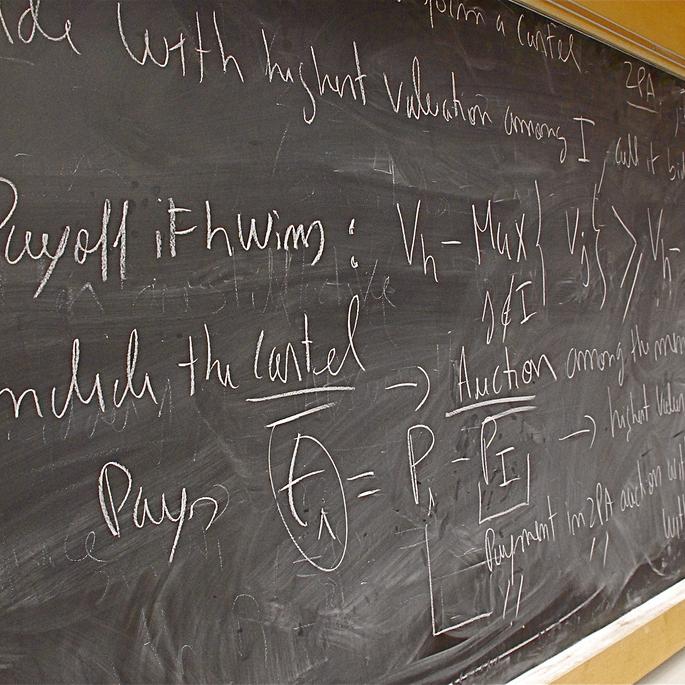 form a cartel.
with highest valuation among I
2PA
call it bid
Payoff if h wins : Vh - Max { Vj } ≥ Vh -
j∉I
the cartel → Auction among the mem
Pays ti = Pi - PI → highest valua
Payment in 2PA auction wit
" "